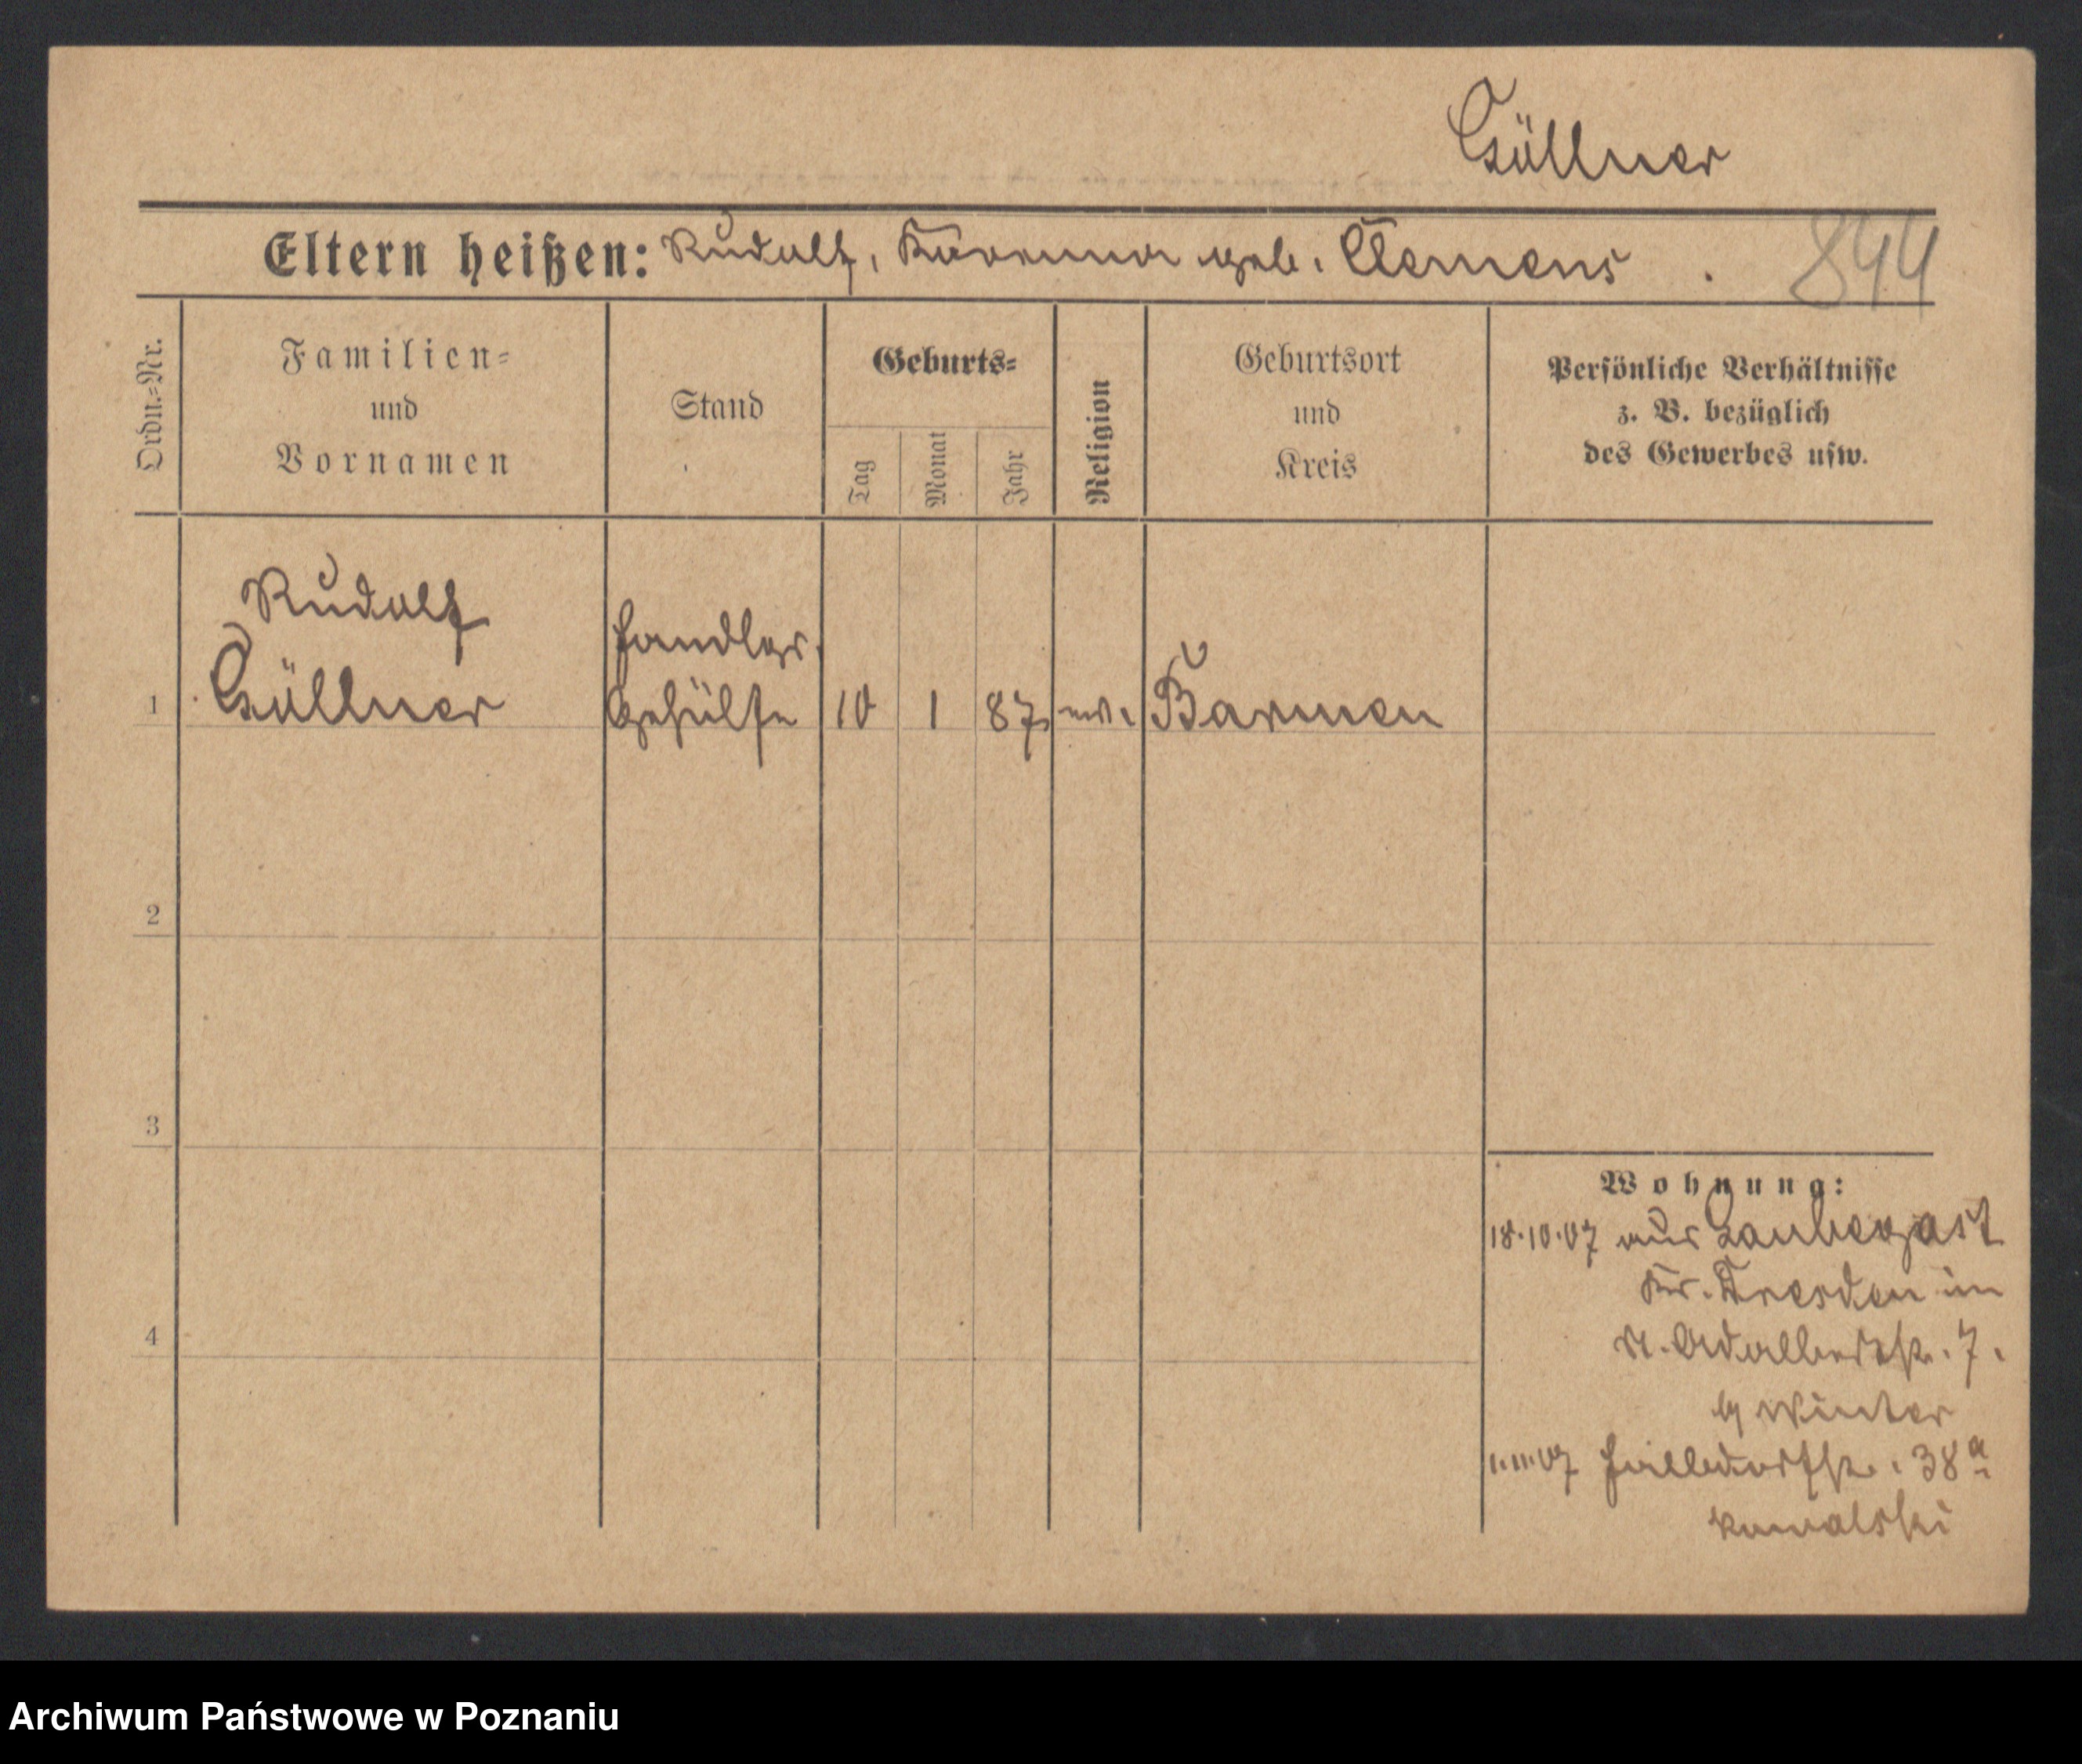 Güllner
Eltern heißen: Rudolf, geb. Clemens .
844
Ordn.=Nr.
Familien=
und
Vornamen
Stand
Geburts=
Tag
Monat
Jahr
Religion
Geburtsort
und
Kreis
Persönliche Verhältnisse
z. B. bezüglich
des Gewerbes usw.
Rudolf
Güllner
Handlgs.
Gehülfe
1
10
1
87
ev.
Barmen
2
3
4
Wohnung:
18.10.07 aus Laubegast
Kr. Dresden in
St. Adalbertstr. 7.
b/ Winter
1.11.07 Halbdorfstr. 38a
Kowalski
Archiwum Państwowe w Poznaniu